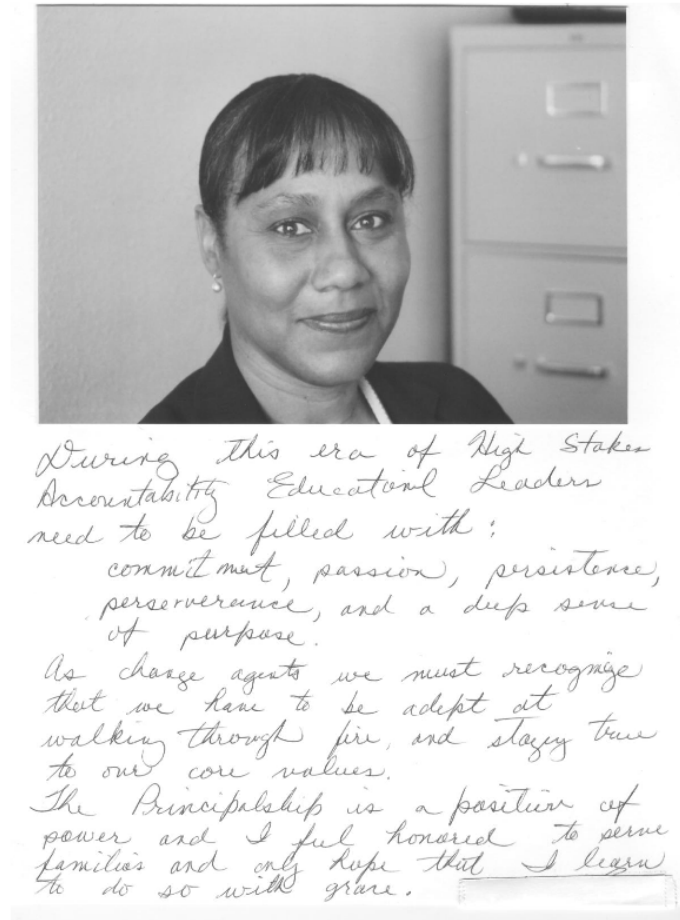 During this era of High Stakes
Accountability Educational Leaders
need to be filled with:
commitment, passion, persistence,
perserverance, and a deep sense
of purpose.
As change agents we must recognize
that we have to be adept at
walking through fire, and staying true
to our core values.
The Principalship is a position of
power and I feel honored to serve
families and only hope that I learn
to do so with grace.